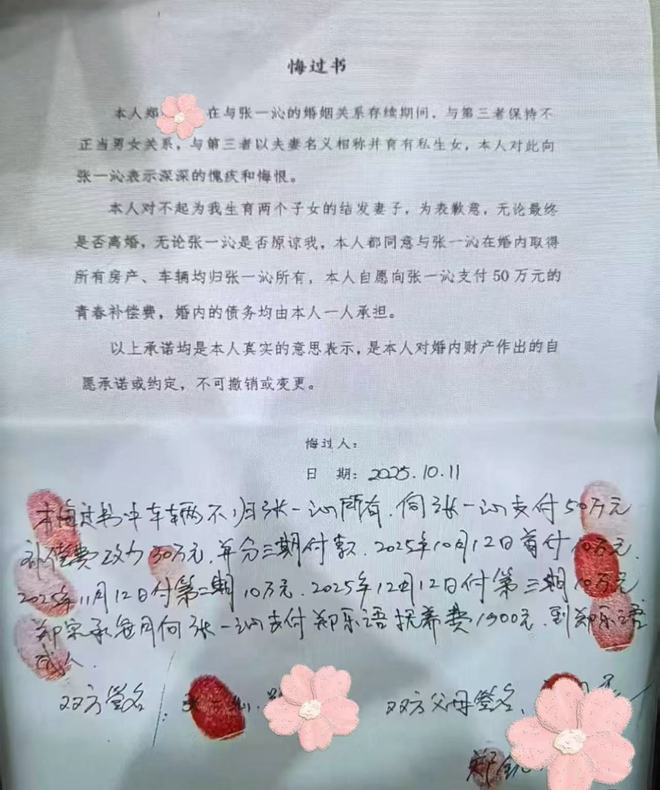 悔过书
本人郑 在与张一沁的婚姻关系存续期间，与第三者保持不
正当男女关系，与第三者以夫妻名义相称并育有私生女，本人对此向
张一沁表示深深的愧疚和悔恨。
本人对不起为我生育两个子女的结发妻子，为表歉意，无论最终
是否离婚，无论张一沁是否原谅我，本人都同意与张一沁在婚内取得
所有房产、车辆均归张一沁所有，本人自愿向张一沁支付50万元的
青春补偿费，婚内的债务均由本人一人承担。
以上承诺均是本人真实的意思表示，是本人对婚内财产作出的自
愿承诺或约定，不可撤销或变更。
悔过人：
日 期：2025.10.11
本悔过书中车辆不归张一沁所有.向张一沁支付50万元
补偿费改为30万元.并分三期付款.2025年10月12日首付10万元.
2025年11月12日付第二期10万元.2025年12月12日付第三期10万元
郑 承每月向张一沁支付郑乐语抚养费1900元.到郑乐语
成人.
双方签名： 双方父母签名：
郑